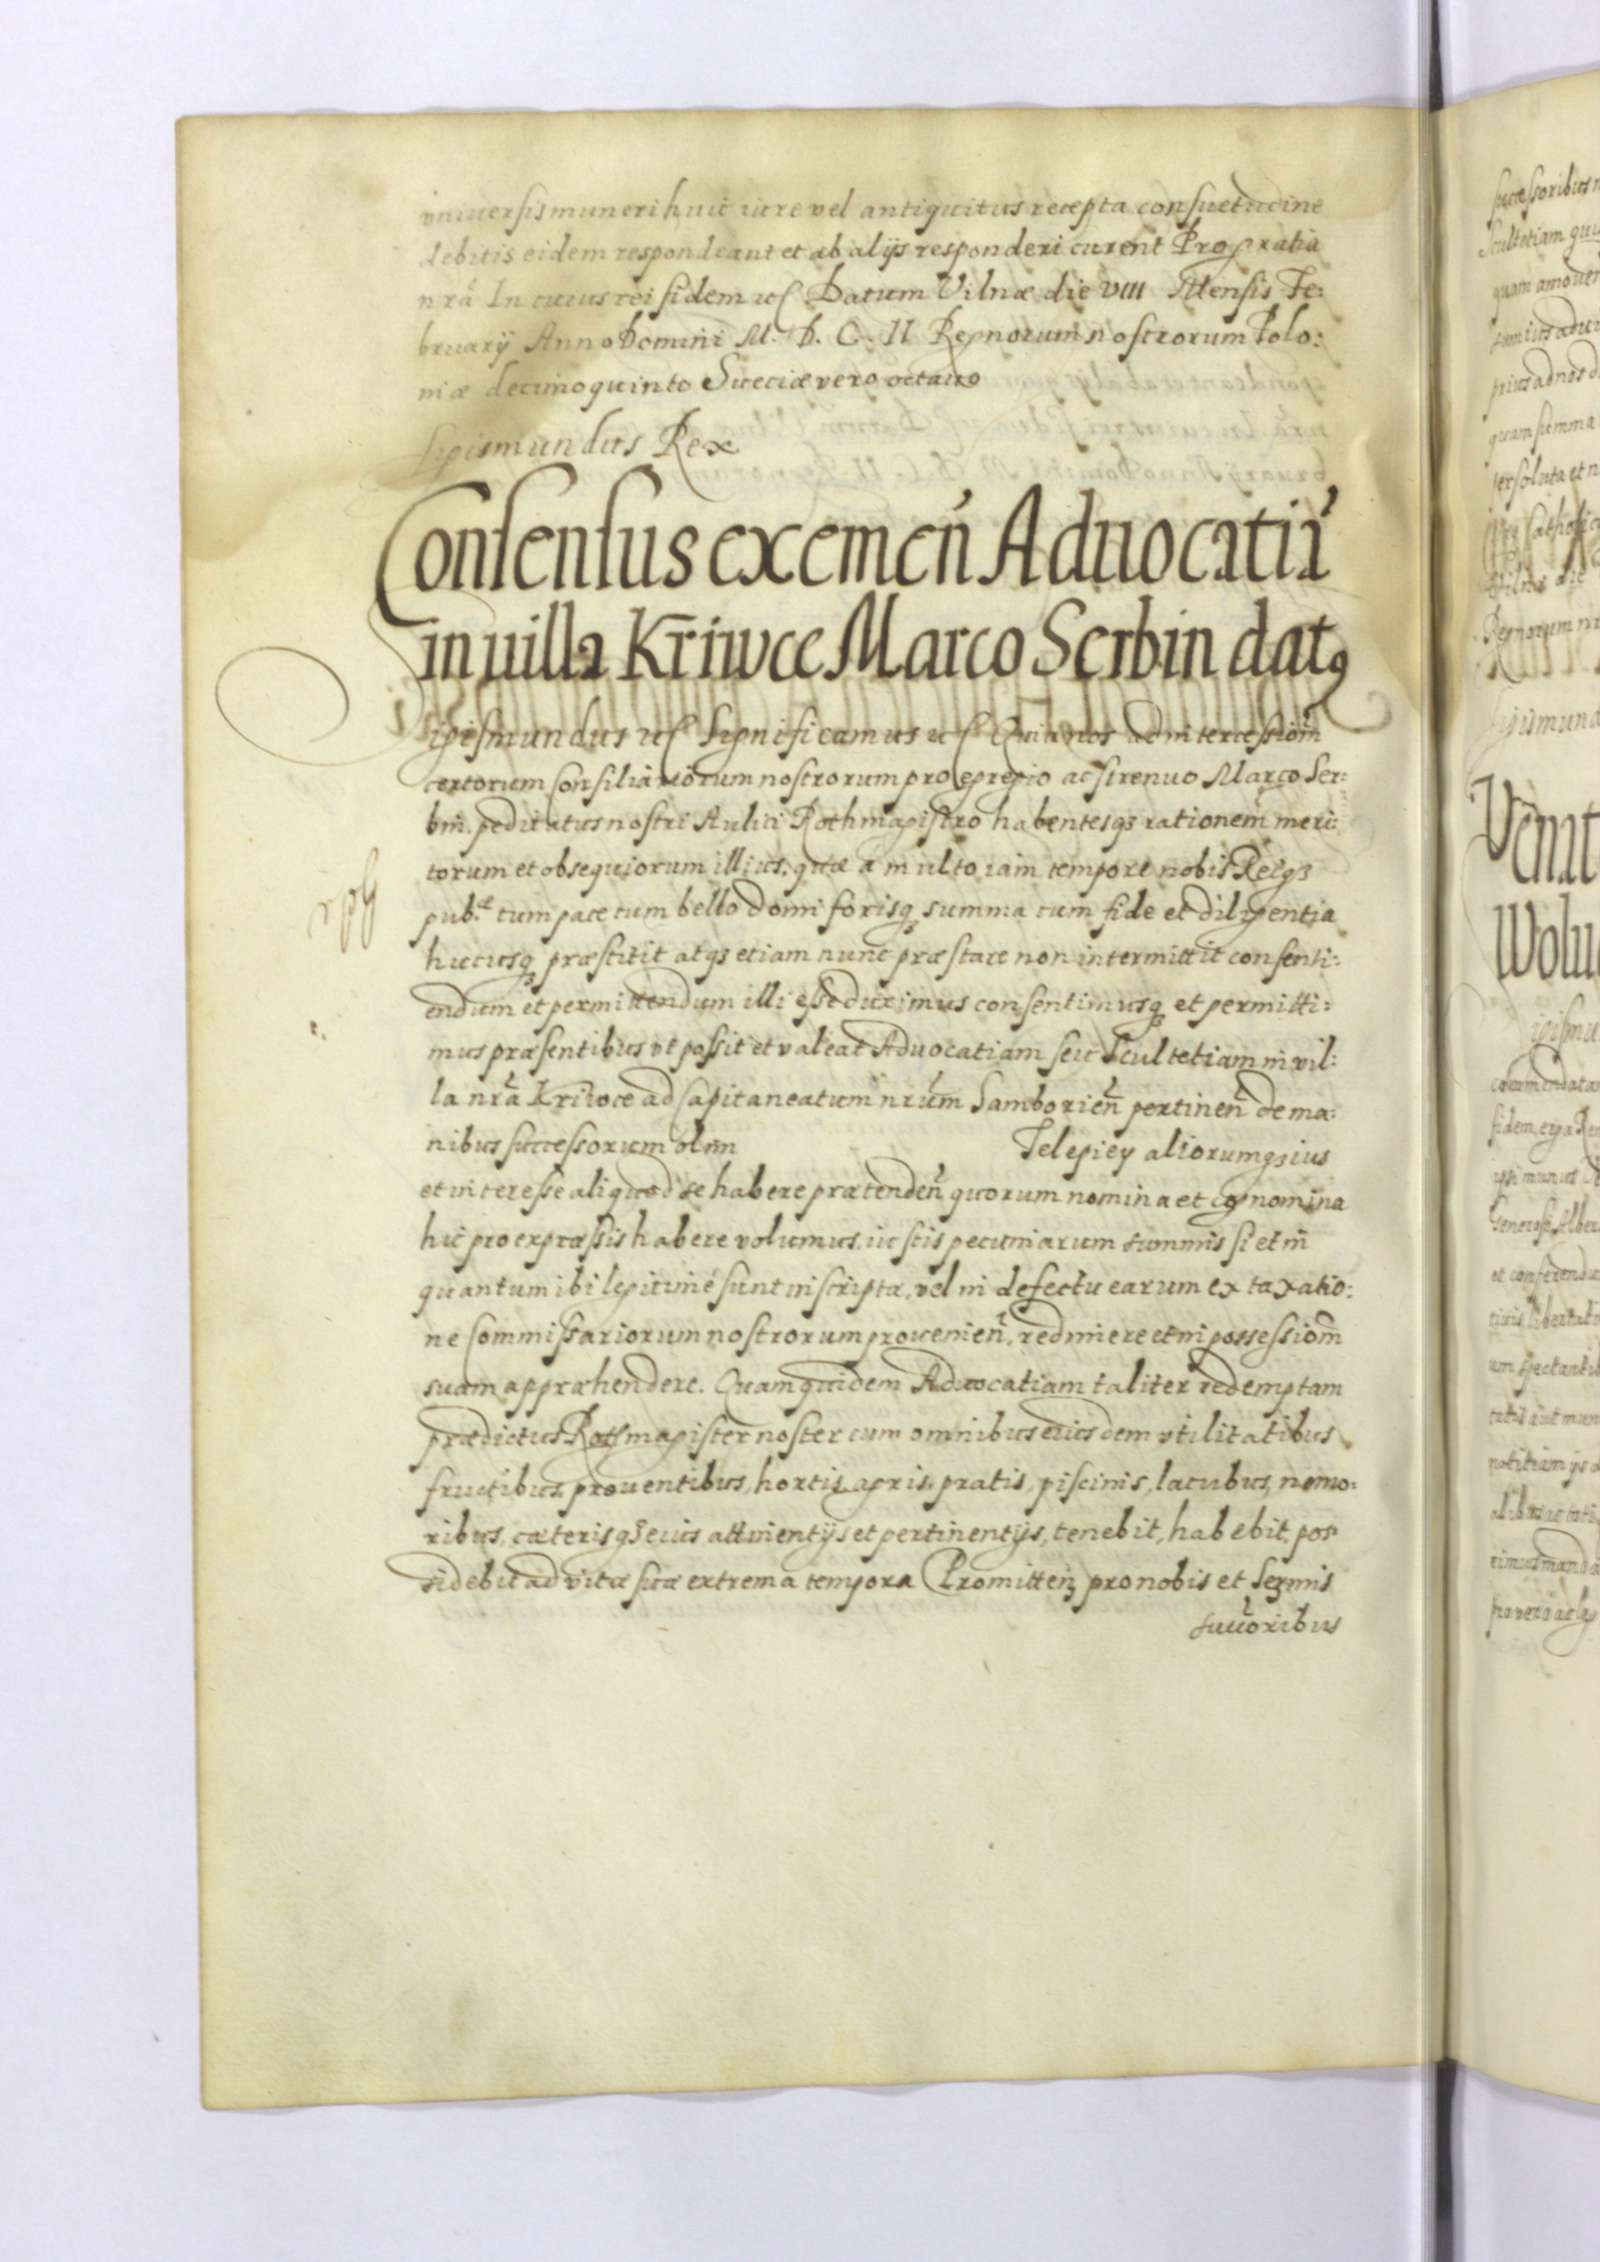 vniuersis muneri huic iure vel antiquitus recepta consuetudine
debitis eidem respondeant et ab alijs responderi curent Pro gratia
nr̃a In cuius rei fidem etc Datum Vilnæ die VIII Mensis Fe:
bruarij Anno Domini M. D. C. II Regnorum nostrorum Polo:
niæ decimo quinto Sueciæ vero octauo
Sigismundus Rex
Consensus exemeñ Aduocatiã
in uilla Kriwce Marco Serbin datq
Sigismundus etc Significamus etc Quia nos ad intercessiom̃
certorum Consiliariorum nostrorum pro egregio ac strenuo Marco Ser:
bin peditatus nostri Aulici Rothmagistro habentesqʒ rationem meri:
torum et obsequiorum illius, quæ a multo iam tempore nobis Reiqʒ
pub.æ tum pace tum bello domi forisqʒ summa cum fide et diligentia
hucusqʒ præstitit atqʒ etiam nunc præstare non intermittit consenti:
endum et permittendum illi esse duximus consentimusqʒ et permitti:
mus præsentibus vt possit et valeat Aduocatiam seu Scultetiam in vil:
la nr̃a Kriwce ad Capitaneatum nr̃um Samborieñ pertineñ de ma:
nibus successorum olim Telepiey aliorumqʒ ius
et interesse aliquod se habere prætendeñ quorum nomina et cognomina
hic pro expræssis habere volumus, iustis pecuniarum summis si et in
quantum ibi legitimé sunt inscriptæ, vel in defectu earum ex taxatio:
ne Commissariorum nostrorum prouenieñ, redimere et in possessiom̃
suam appræhendere. Quam quidem Aduocatiam taliter redemptam
prædictus Rothmagister noster cum omnibus eiusdem vtilitatibus
fructibus, prouentibus, hortis, agris, pratis, piscinis, lacubus, nemo:
ribus, cæterisqʒ eius attinentijs et pertinentijs, tenebit, habebit, pos
sidebit ad vitæ suæ extrema tempora Promitteñ pro nobis et Sermis
succoribus